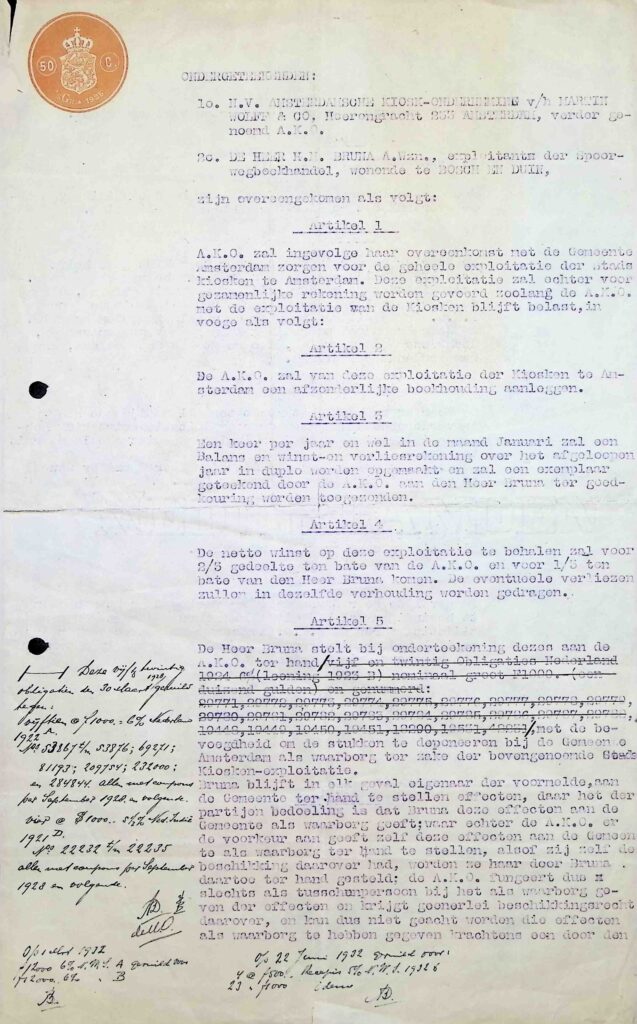 50 C.
ONDERGETEEKENDEN:
1o. N.V. AMSTERDAMSCHE KIOSK-ONDERNEMING v/h MARTIN
WOLFF & CO. Heerengracht AMSTERDAM, verder ge-
noemd A.K.O.
2o. DE HEER H.M. BRUNA A.Wzn., exploitante der Spoor-
wegboekhandel, wonende te BOSCH EN DUIN,
zijn overeengekomen als volgt:
Artikel 1
A.K.O. zal ingevolge haar overeenkomst met de Gemeente
Amsterdam zorgen voor de geheele exploitatie der Stads
kiosken te Amsterdam. Deze exploitatie zal echter voor
gezamenlijke rekening worden gevoerd zoolang de A.K.O.
met de exploitatie van de Kiosken blijft belast,in
voege als volgt:
Artikel 2
De A.K.O. zal van deze exploitatie der Kiosken te Am-
sterdam een afzonderlijke boekhouding aanleggen.
Artikel 3
Een keer per jaar en wel in de maand Januari zal een
Balans en winst-en verliesrekening over het afgeloopen
jaar in duplo worden opgemaakt en zal een exemplaar
geteekend door de A.K.O. aan den Heer Bruna ter goed-
keuring worden toegezonden.
Artikel 4
De netto winst op deze exploitatie te behalen zal voor
2/3 gedeelte ten bate van de A.K.O. en voor 1/3 ten
bate van den Heer Bruna komen. De eventueele verliezen
zullen in dezelfde verhouding worden gedragen.
Artikel 5
De Heer Bruna stelt bij onderteekening dezes aan de
A.K.O. ter hand/vijf en twintig Obligaties Nederland
1924 (leening 1923 B) nominaal groot F1000. (een
duizend gulden) en genummerd:
29771,29772,29773,29774,29775,29776,29777,29778,29779,
met de be-
voegdheid om de stukken te deponeeren bij de Gemeente
Amsterdam als waarborg ter zake der bovengenoemde Stads
Kiosken-exploitatie.
Bruna blijft in elk geval eigenaar der voormelde,aan
de Gemeente ter hand te stellen effecten, daar het der
partijen bedoeling is dat Bruna deze effecten aan de
Gemeente als waarborg geeft;waar echter de A.K.O. er
de voorkeur aan geeft zelf deze effecten aan de Gemeen
te als waarborg ter hand te stellen, alsof zij zelf de
beschikking daarover had, worden ze haar door Bruna
daartoe ter hand gesteld; de A.K.O. fungeert dus x
slechts als tusschenpersoon bij het als waarborg ge-
ven der effecten en krijgt geenerlei beschikkingsrecht
daarover, en kan dus niet geacht worden die effecten
als waarborg te hebben gegeven krachtens een door den
Deze vijf & twintig
obligatien den 30 Maart geruild
tegen:
vijftien @ f1000.- 6% Nederland
1922 A
Nos 53867 t/m 53876; 69271;
81193; 209754; 232000;
en 284844. allen met coupons
per September 1928 en volgende.
vier @ $1000.- 5½% Ned. Indië
1921 D.
Nos 22232 t/m 22235
allen met coupons per September
1928 en volgende.
1932
f12000 6% N.W.S. A geruild voor
f12000. 6% " B
o/s 22 Juni 1932 geruild voor:
4 @ f500.- Recepis 5% N.W.S. 1932
23 " f1000 idem